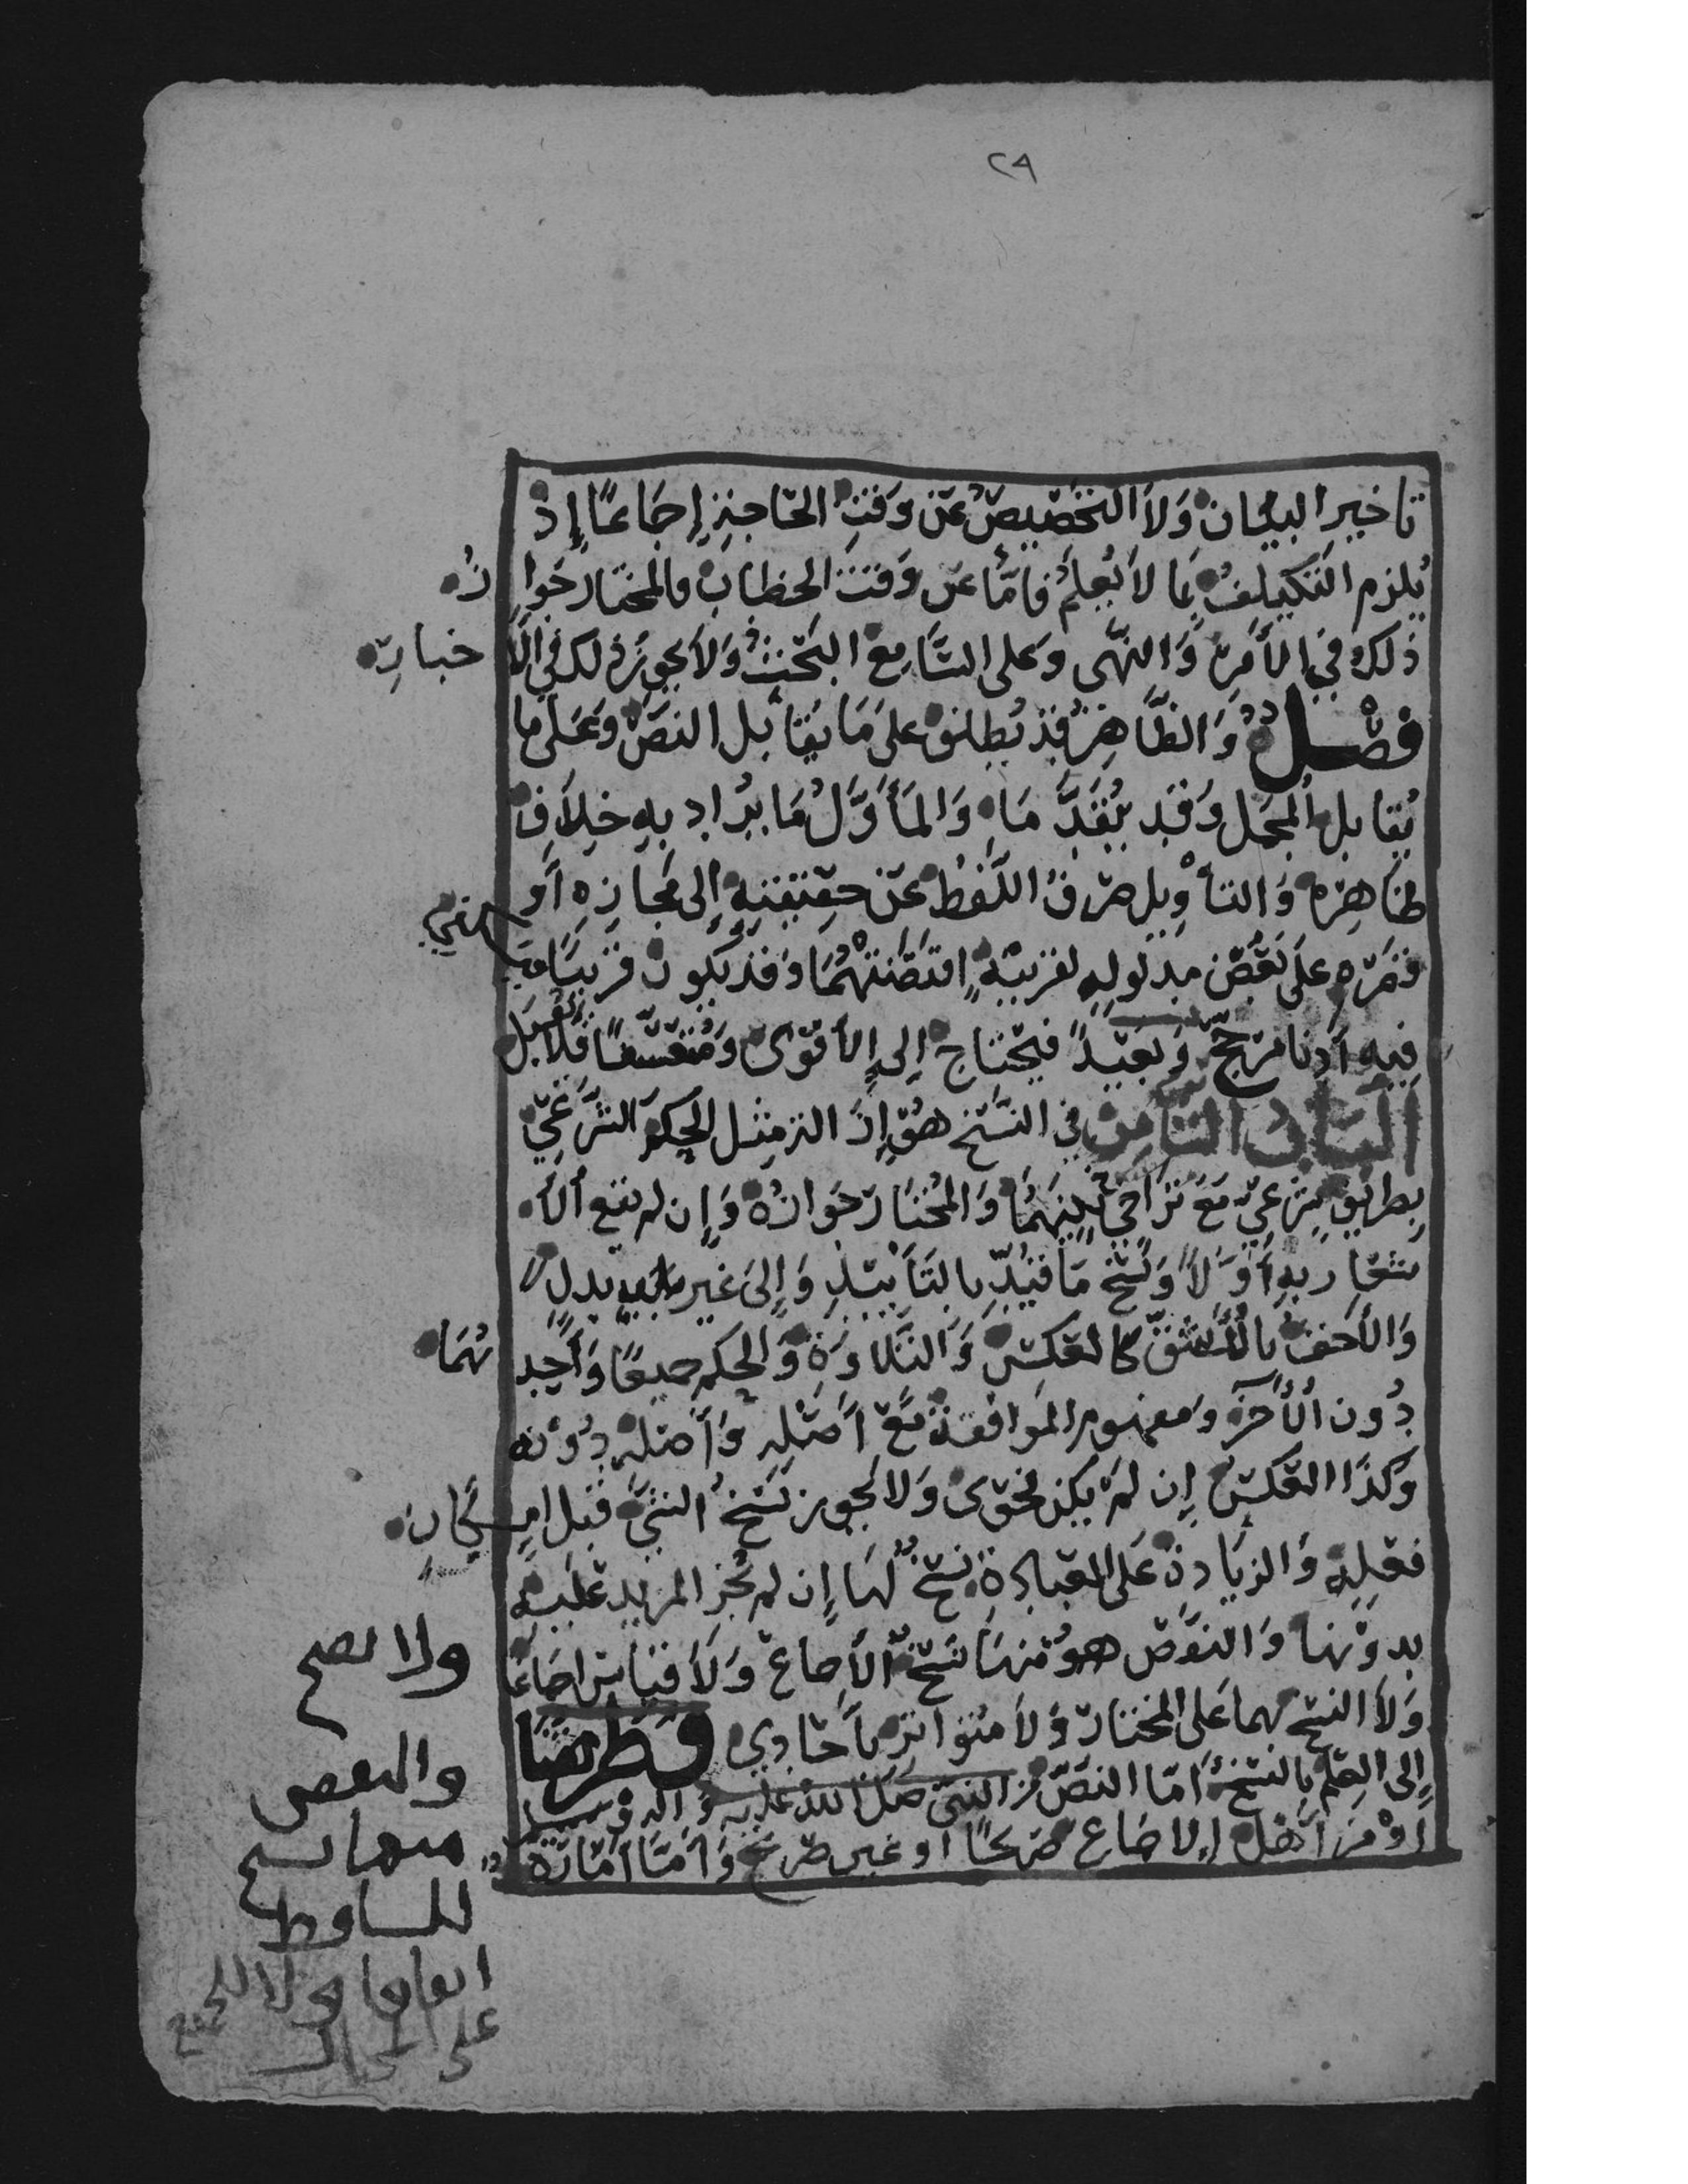 ٢٩
تاخير البيان ولا التخصيص عن وقت الحاجة إجماعًا إذ
يلزم التكليف بما لا يعلم فأما عن وقت الخطاب فالمختار جوازه
ذلك في الأمر والنهي وعلى السامع البحث ولا يجوز ذلك في الأخبار
فصل والظاهر قد يطلق على ما يقابل النص وعلى ما
يقابل المجمل وقد تقدما والمأول ما يراد به خلاف
ظاهره والتأويل صرف اللفظ عن حقيقته إلى مجازه أو
قصره على بعض مدلوله لقرينة اقتضتهما وقد يكون قريبا فيكفي
فيه أدنا مرجح وبعيدًا فيحتاج إلى الأقوى ومتعسفًا فلا يقبل
الباب الثامن في النسخ هو إزالة مثل الحكم الشرعي
بطريق شرعي مع تراخي بينهما والمختار جوازه وإن لم يقع الا
شعار به أولا ونسخ ما قيد بالتأبيد وإلى غير بدل
والأخف بالأشق كالعكس والتلاوة والحكم جميعًا وأحدهما
دون الأخر ومفهوم الموافقة مع أصله وأصله دونه
وكذا العكس إن لم يكن فحوى ولا يجوز نسخ الشي قبل إمكان
فعله والزيادة على العبادة نسخ لها إن لم يجز المزيد عليه
بدونها والنقص هو منها نسخ الأجماع ولا قياس اجماعًا
ولا النسخ بهما على المختار ولا متواتر بأحادي وطريقنا
إلى العلم بالنسخ أما النص من النبي صلى الله عليه واله وسلم
أو من أهل الاجماع صريحًا أو غير صريح وأما أمارة
ولا يصح
والنقص
منها نسخ
للساقط
اتفاقا لا للجميع
على